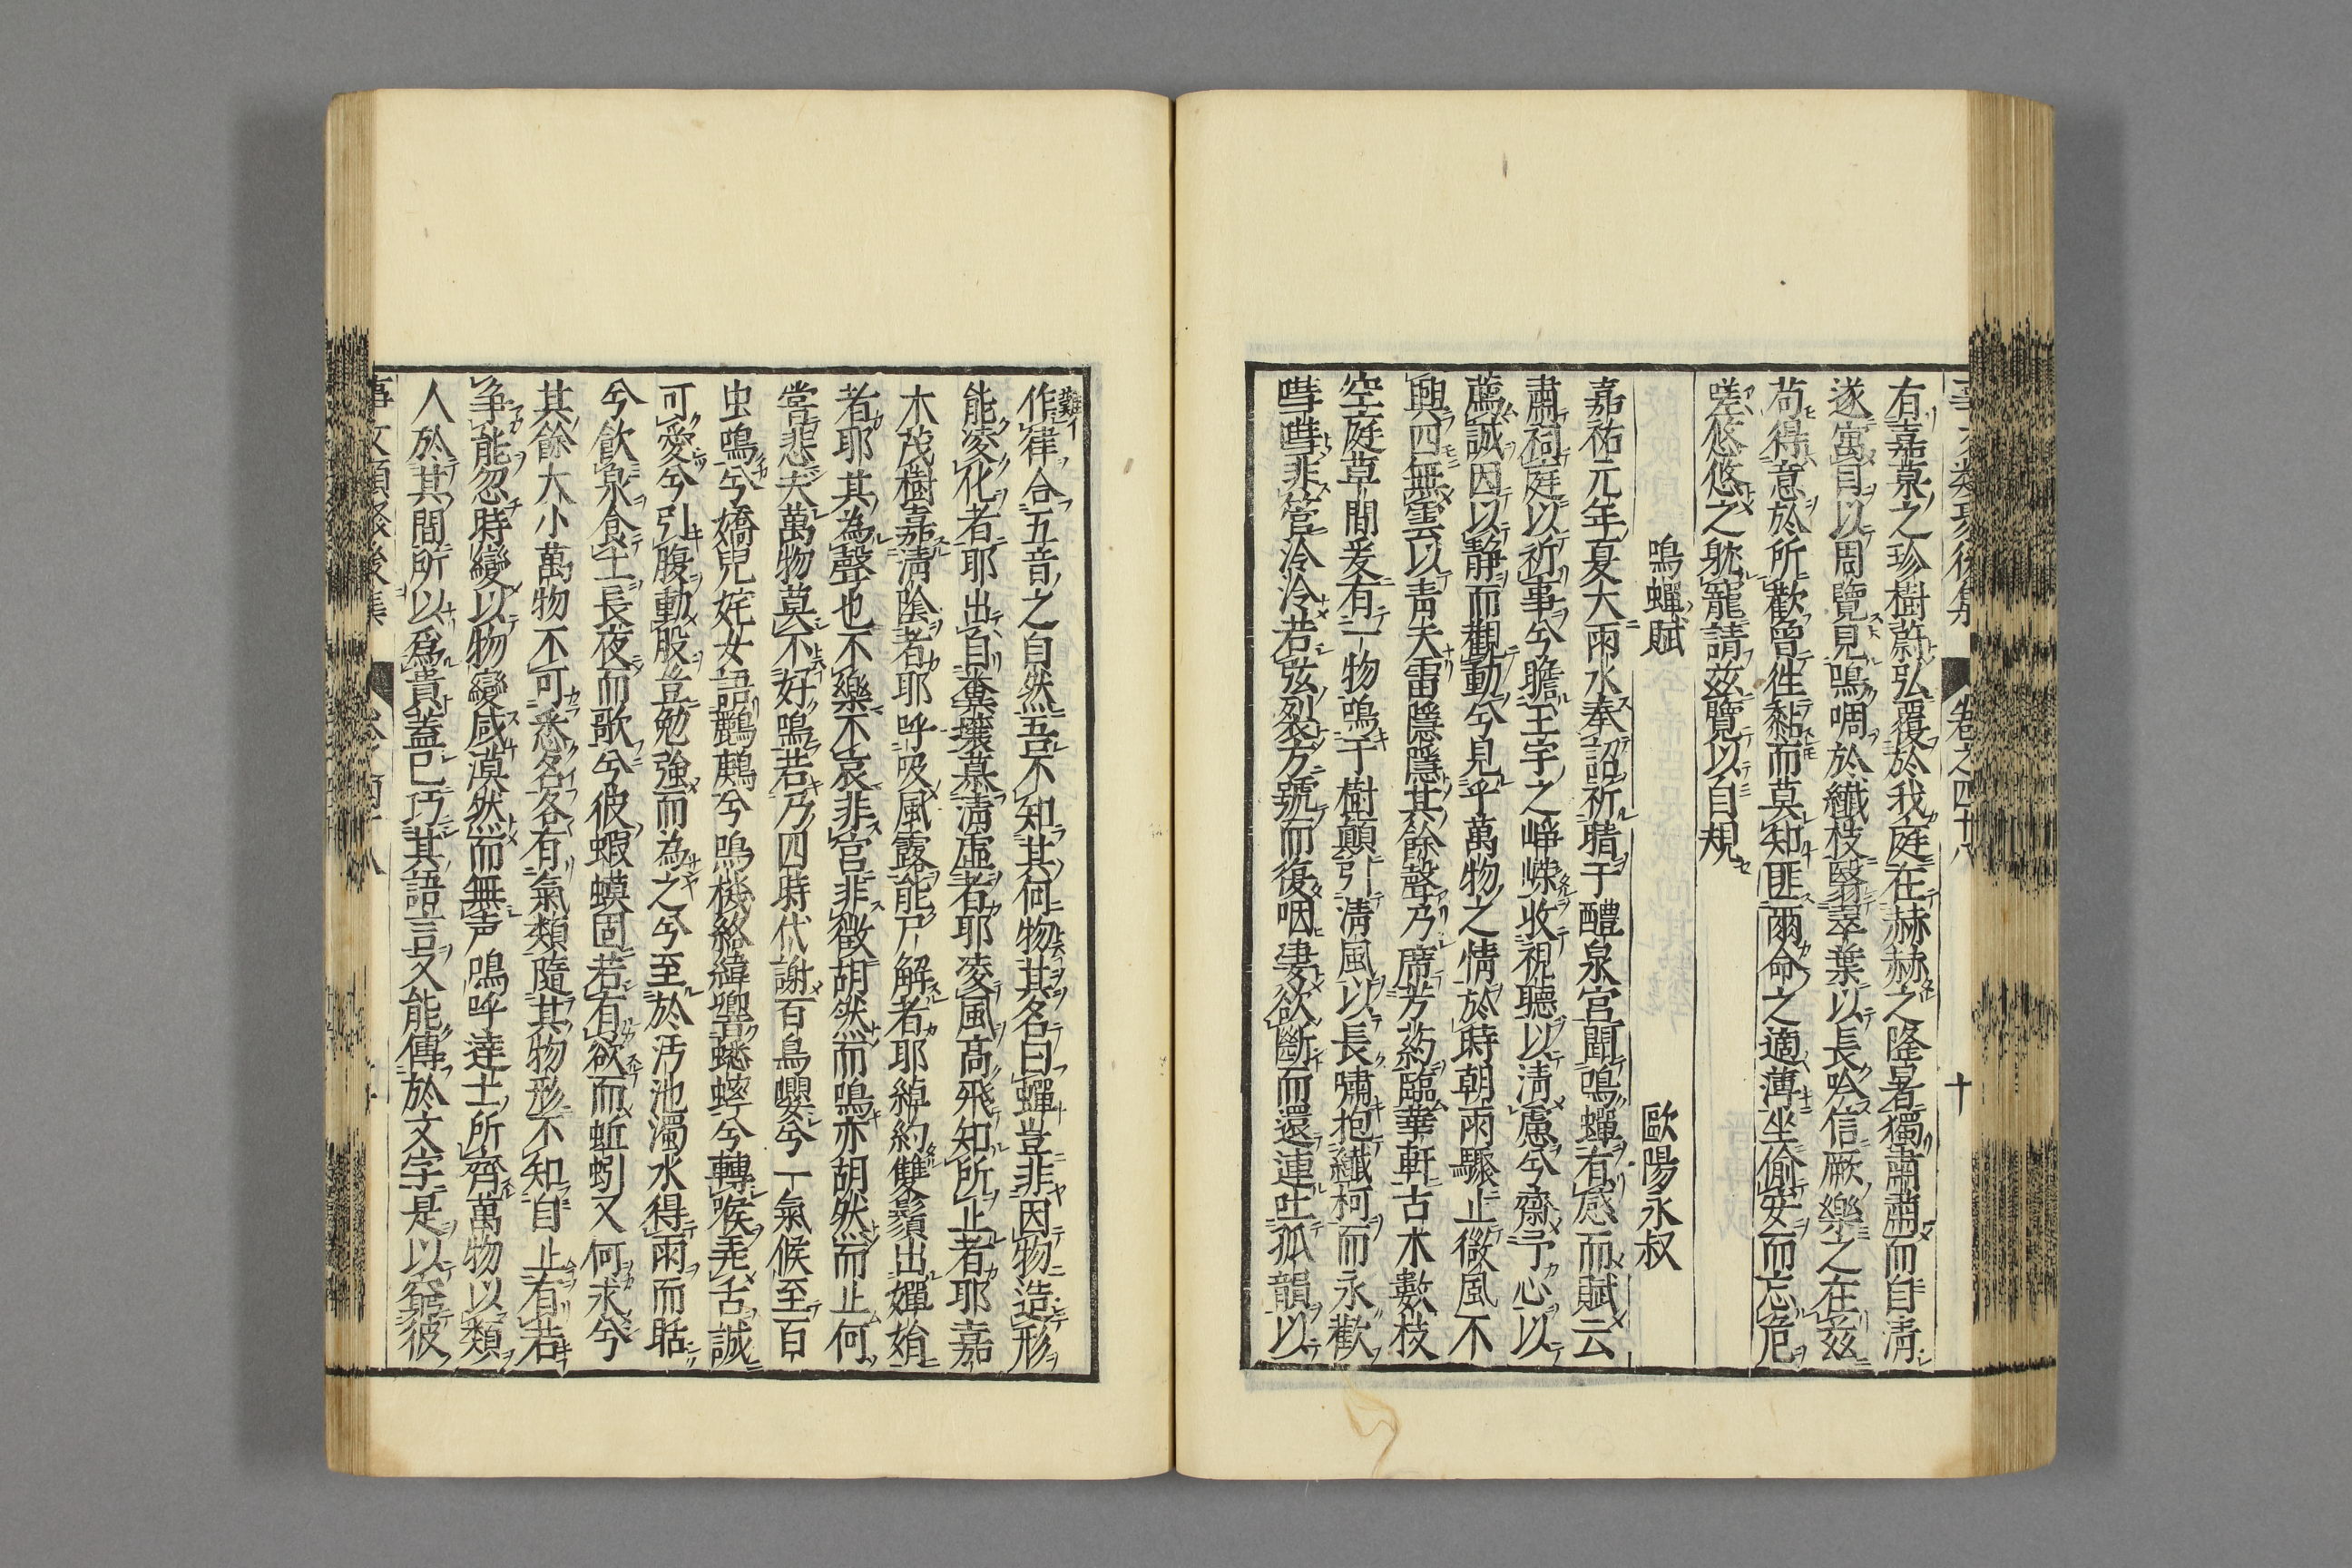 事文類聚後集 卷之四十八 十
有嘉菓之珍樹蔚弘覆於我庭在赫赫之隆暑獨肅肅而自清
遂寓目以周覽見鳴蜩於纖枝翳翠葉以長吟信厥樂之在茲
苟得意於所歡曾徃黏而莫知匪爾命之適薄坐偷安而忘危
嗟悠悠之躭寵請茲覽以自規
鳴蟬賦 歐陽永叔
嘉祐元年夏大雨水奉詔祈晴于醴泉宮聞鳴蟬有感而賦云
肅祠庭以祈事兮瞻玉宇之崢嶸收視聽以清慮兮齋予心以
薦誠因以靜而觀動兮見乎萬物之情於時朝雨驟止微風不
興四無雲以青天雷隱隱其餘聲乃席芳葯臨華軒古木數枝
空庭草間爰有一物鳴于樹顛引清風以長嘯抱纖柯而永歡
嘒嘒非管泠泠若弦裂方號而復咽凄欲斷而還連吐孤韻以
難
作律合五音之自然吾不知其何物其名曰蟬豈非因物造形
能凌化者耶出自糞壤慕清虛者耶凌風高飛知所止者耶嘉
木茂樹嘉清陰者耶呼吸風露能尸解者耶綽約雙鬢出嬋娟
者耶其為聲也不樂不哀非宮非徵胡然而鳴亦胡然而止何
嘗悲夫萬物莫不好鳴若乃四時代謝百鳥嚶兮一氣候至百
虫鳴兮嬌兒姹女語鸝鶊兮鳴機絡緯響蟋蟀兮轉喉弄舌誠
可愛兮引腹動股豈勉強而為之兮至於汚池濁水得雨而聒
兮飲泉食土長夜而歌兮彼蝦蟆固若有欲而蚯蚓又何求兮
其餘大小萬物不可悉名各有氣類隨其物形不知自止有若
争能忽時變以物變咸漠然而無声鳴呼達士所齊萬物以類
人於其間所以爲貴蓋已巧其語言又能傳於文字是以窮彼
事文類聚後集